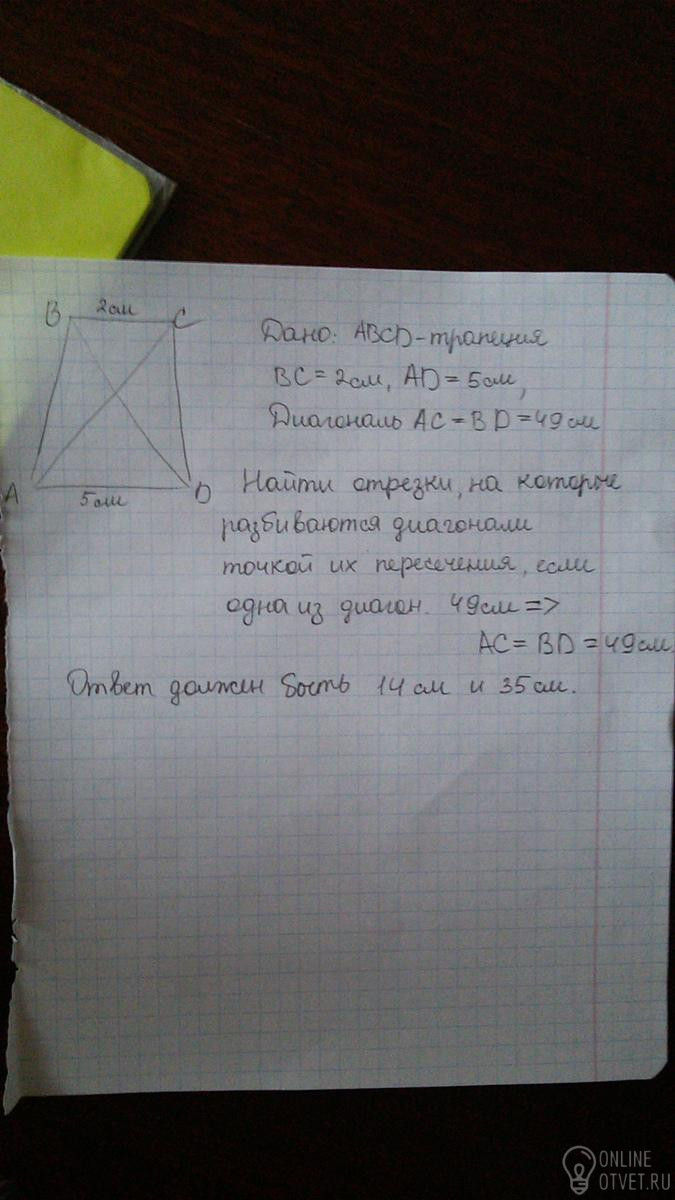 B 2см C
A 5см D
Дано: ABCD-трапеция
BC=2см, AD=5см,
Диагональ AC=BD=49см
Найти отрезки, на которые
разбиваются диагонали
точкой их пересечения, если
одна из диагон. 49см =>
AC=BD=49см
Ответ должен быть 14см и 35см.
ONLINE
OTVET.RU